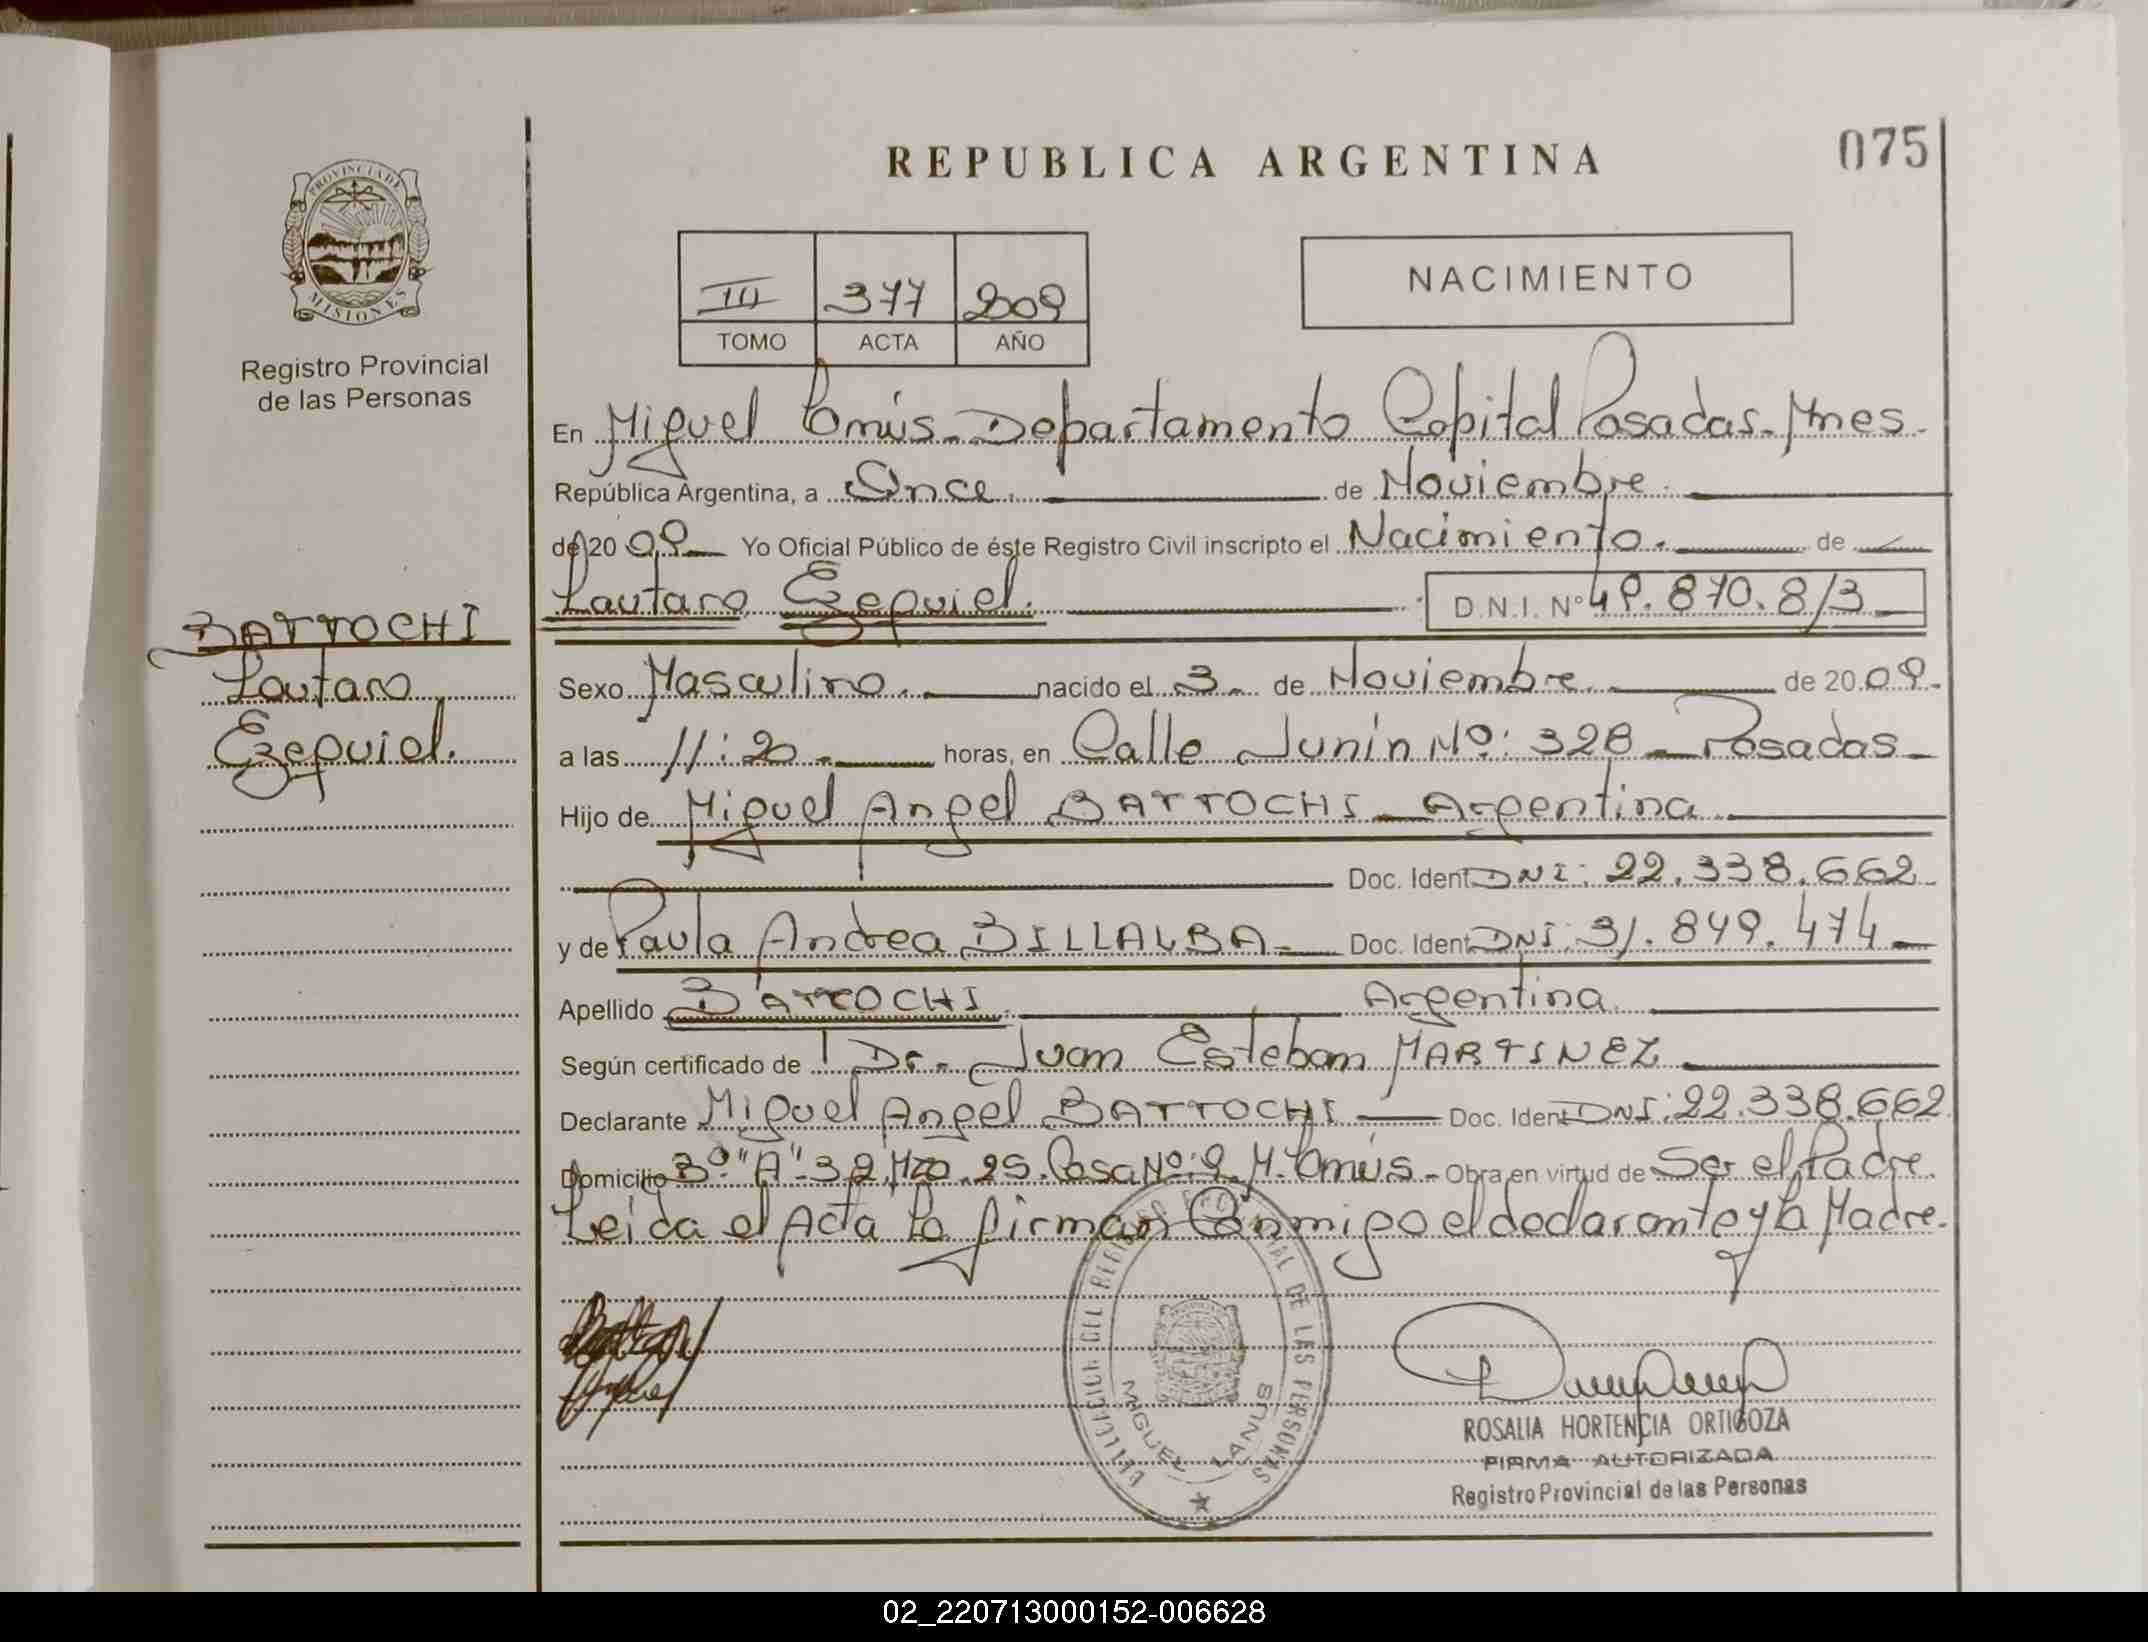 REPUBLICA ARGENTINA
075
PROVINCIA DE
MISIONES
Registro Provincial
de las Personas
III 377 2009
TOMO ACTA AÑO
NACIMIENTO
En Miguel Lanús - Departamento Capital Posadas - Mnes.
República Argentina, a Once. de Noviembre.
de 2009 Yo Oficial Público de éste Registro Civil inscripto el Nacimiento. de
Lautaro Ezequiel. D.N.I. Nº 49.870.813
BATTOCHI
Lautaro
Ezequiel.
Sexo Masculino. nacido el 3. de Noviembre de 2009.
a las 11:20. horas, en Calle Junín Nº: 328 - Posadas -
Hijo de Miguel Angel BATTOCHI - Argentina
Doc. Ident DNI: 22.338.662
y de Paula Andrea BILLALBA - Doc. Ident DNI: 31.849.474
Apellido BATTOCHI. Argentina.
Según certificado de Dr. Juan Esteban MARTINEZ
Declarante Miguel Angel BATTOCHI - Doc. Ident DNI: 22.338.662
Domicilio 3º "A" - 32, Mza. 25. Casa Nº: 9. M. Lanús - Obra en virtud de Ser el Padre.
Leida el Acta la firman Conmigo el declarante y la Madre.
DELEGACION DEL REGISTRO PROVINCIAL DE LAS PERSONAS
MIGUEL LANUS
ROSALIA HORTENCIA ORTIGOZA
FIRMA AUTORIZADA
Registro Provincial de las Personas
02_220713000152-006628